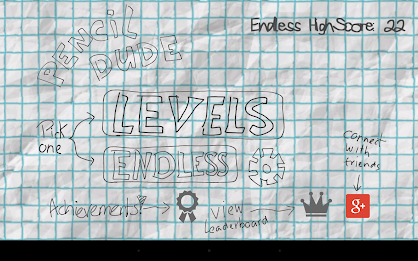 PENCIL
DUDE
Endless HighScore: 22
LEVELS
Pick
one
ENDLESS
Connect
with
friends
Achievements!
View
Leaderboard
g+